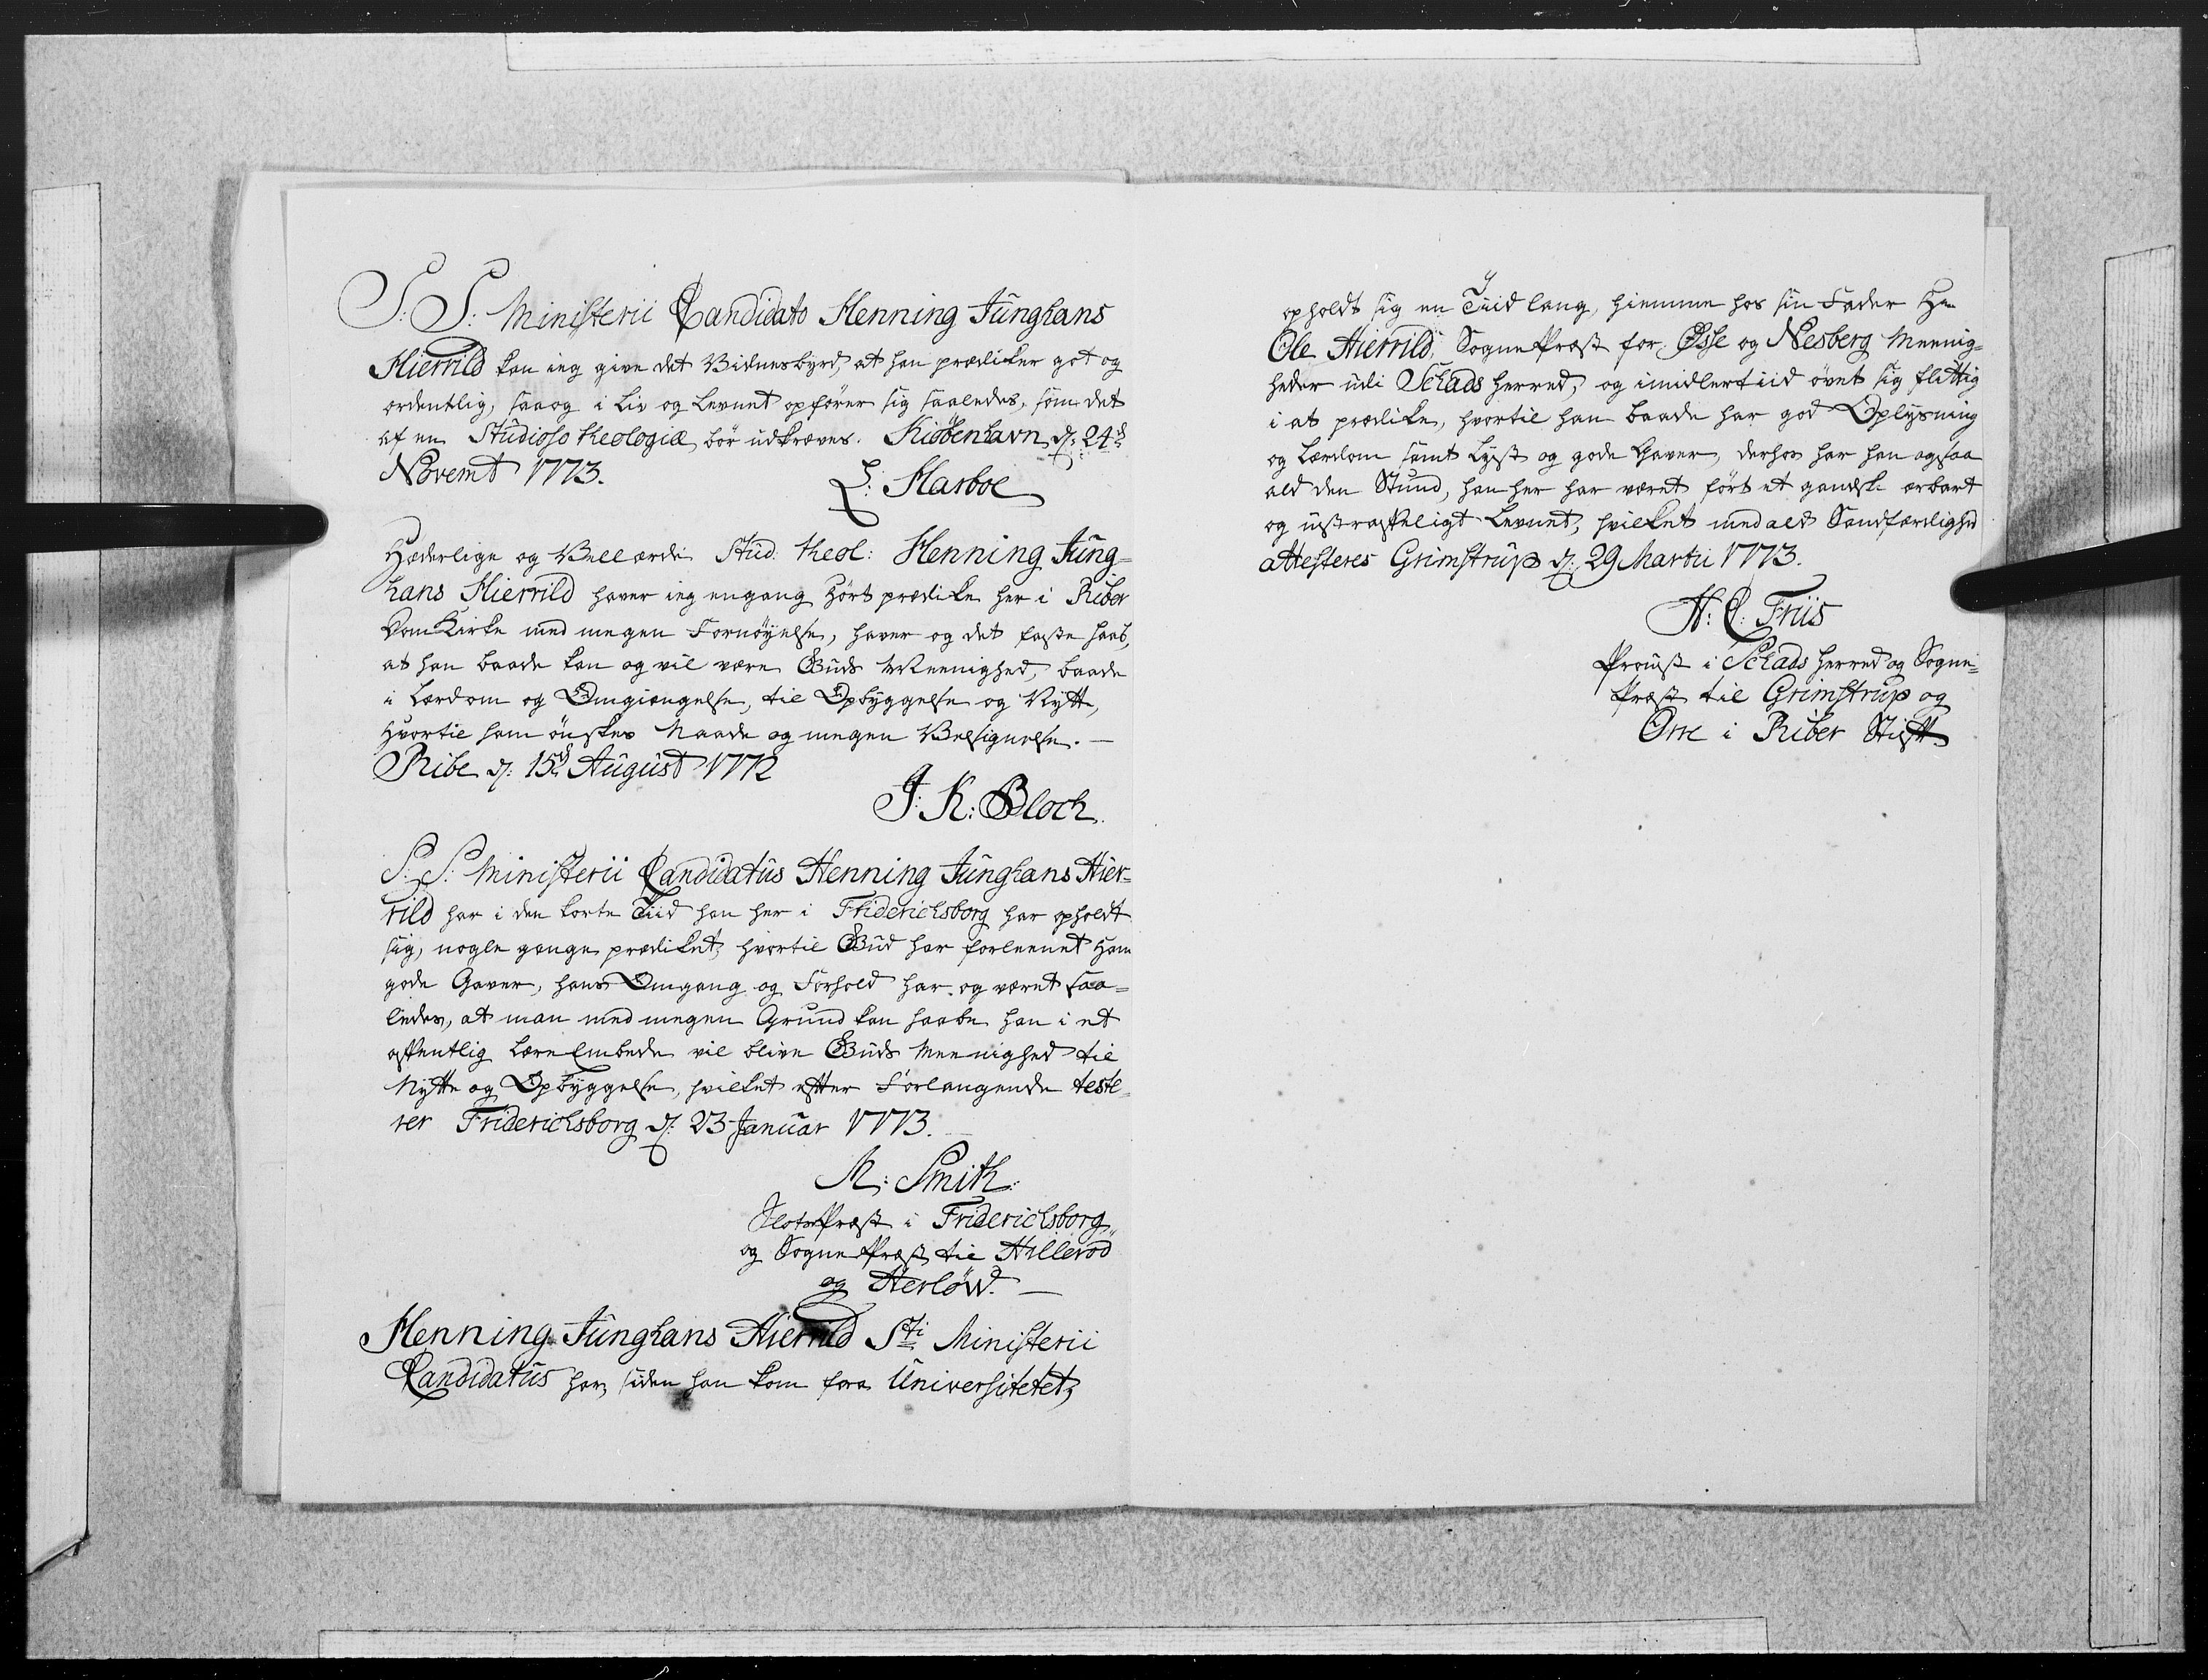 S: S: Ministerii Candidato Henning Junghans
Hierrild kan ieg give det Vidnesbyrd, at han prædiker got og
ordentlig, saa og i Liv og Levnet opfører sig saaledes, som det
af en Studioso theologiæ bør udkræves. Kiøbenhavn d: 24de
Novembr 1773.
L: Harboe
Hæderlige og Vellærde Stud: theol: Henning Jung-
hans Hierrild haver ieg engang hørt prædike her i Riber
Dom Kirke med megen Fornøyelse, haver og det faste Haab,
at han baade kan og vil være Guds Meenighed, baade
i Lærdom og Omgiængelse, til Opbyggelse og Nytte,
hvortil ham ønskes Naade og megen Velsignelse. —
Ribe d: 15de August 1772
J: K: Bloch.
S: S: Ministerii Candidatus Henning Junghans Hier-
rild har i den korte Tiid han her i Friderichsborg har opholdt
sig, nogle gange prædiket, hvortil Gud har forleenet ham
gode Gaver, hans Omgang og Forhold har og været saa-
ledes, at man med megen Grund kan haabe han i et
offentlig Lære Embede vil blive Guds Meenighed til
Nytte og Opbyggelse, hvilket efter Forlangende teste-
rer Friderichsborg d: 23 Januar 1773.
M: Smith.
Slots Præst i Friderichsborg
og Sogne Præst til Hillerød
og Herløw. —
Henning Junghans Hierrild Sti Ministerii
Candidatus har, siden han kom fra Universitetet,
opholdt sig en Tiid lang, hiemme hos sin Fader Hr
Ole Hierrild, Sogne Præst for Øsse og Nesberg Meenig-
heder udi Schads Herred, og imidlertiid øvet sig flittig
i at prædike, hvortil han baade har god Oplysning
og Lærdom samt Lyst og gode Gaver, derhos har han ogsaa
ald den Stund, han her har været ført et gandske ærbart
og ustraffeligt Levnet, hvilket med ald Sandfærdighed
attesteres Grimstrup d: 29 Martii 1773.
H: C: Friis
Provst i Schads Herred og Sogne-
Præst til Grimstrup og
Orre i Riber Stift